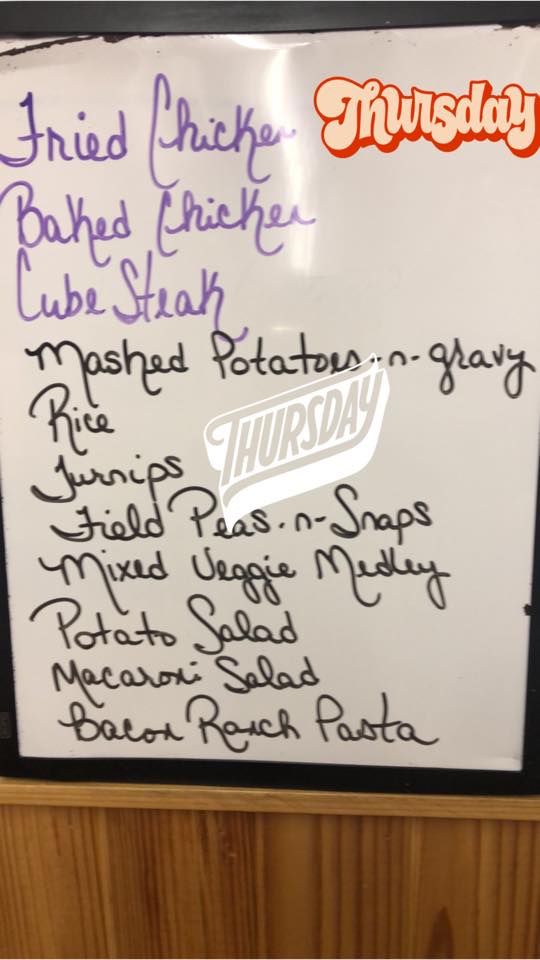 Thursday
Fried Chicken
Baked Chicken
Cube Steak
Mashed Potatoes-n-gravy
Rice
THURSDAY
Turnips
Field Peas-n-Snaps
Mixed Veggie Medley
Potato Salad
Macaroni Salad
Bacon Ranch Pasta